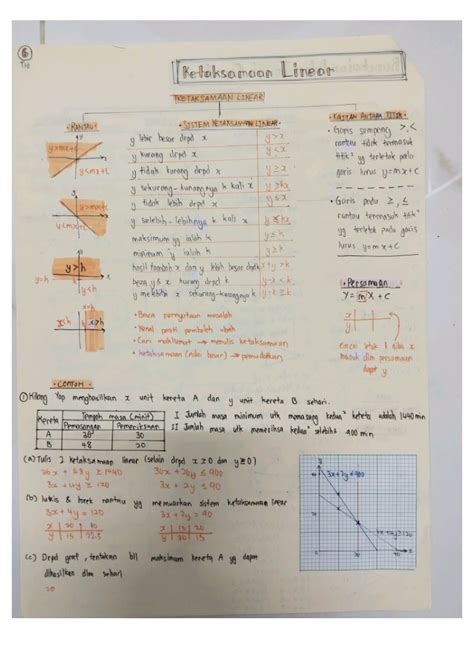 6
T10
Ketaksamaan Linear
KETAKSAMAAN LINEAR
• RANTAU •
y
y>mx+c
y<mx+c
y>mx+c
y<mx+c
y>h
y<h
x≤h
x>h
• SISTEM KETAKSAMAAN LINEAR •
y lebih besar drpd x y>x
y kurang drpd x y<x
y tidak kurang drpd x y≥x
y sekurang-kurangnya k kali x y≥kx
y tidak lebih drpd x y≤x
y selebih-lebihnya k kali x y≤kx
maksimum y ialah k y≤k
minimum y ialah k y≥k
hasil tambah x dan y lebih besar drpd k x+y>k
beza y & x kurang drpd k y-x<k
y melebihi x sekurang-kurangnya k y-x≥k
• Baca pernyataan masalah
• Kenal pasti pemboleh ubah
• Cari maklumat → menulis ketaksamaan
• ketaksamaan (nilai besar) → permudahkan
• KAITAN ANTARA TITIK •
• Garis sempang >, <
rantau tidak termasuk
titik² yg terletak pada
garis lurus y=mx+c
• Garis padu ≥, ≤
rantau termasuk titik²
yg terletak pada garis
lurus y=mx+c
• Persamaan
Y = mX + c
x
y
masuk dlm persamaan
dapat y.
• CONTOH •
① Kilang Yop menghasilkan x unit kereta A dan y unit kereta B sehari.
Kereta Tempoh masa (minit)
Pemasangan Pemeriksaan
A 36 30
B 48 20
I Jumlah masa minimum utk memasang kedua² kereta adalah 1440 min
II Jumlah masa utk memeriksa kedua² selebih² 900 min
(a) Tulis 2 ketaksamaan linear (selain drpd x≥0 dan y≥0)
36x + 48y ≥ 1440 30x + 20y ≤ 900
3x + 4y ≥ 120 3x + 2y ≤ 90
(b) lukis & lorek rantau yg memuaskan sistem ketaksamaan linear
3x + 4y = 120 3x + 2y = 90
x 20 10 x 10 20
y 15 22.5 y 30 15
(c) Drpd graf, tentukan bil maksimum kereta A yg dapat
dihasilkan dlm sehari
20